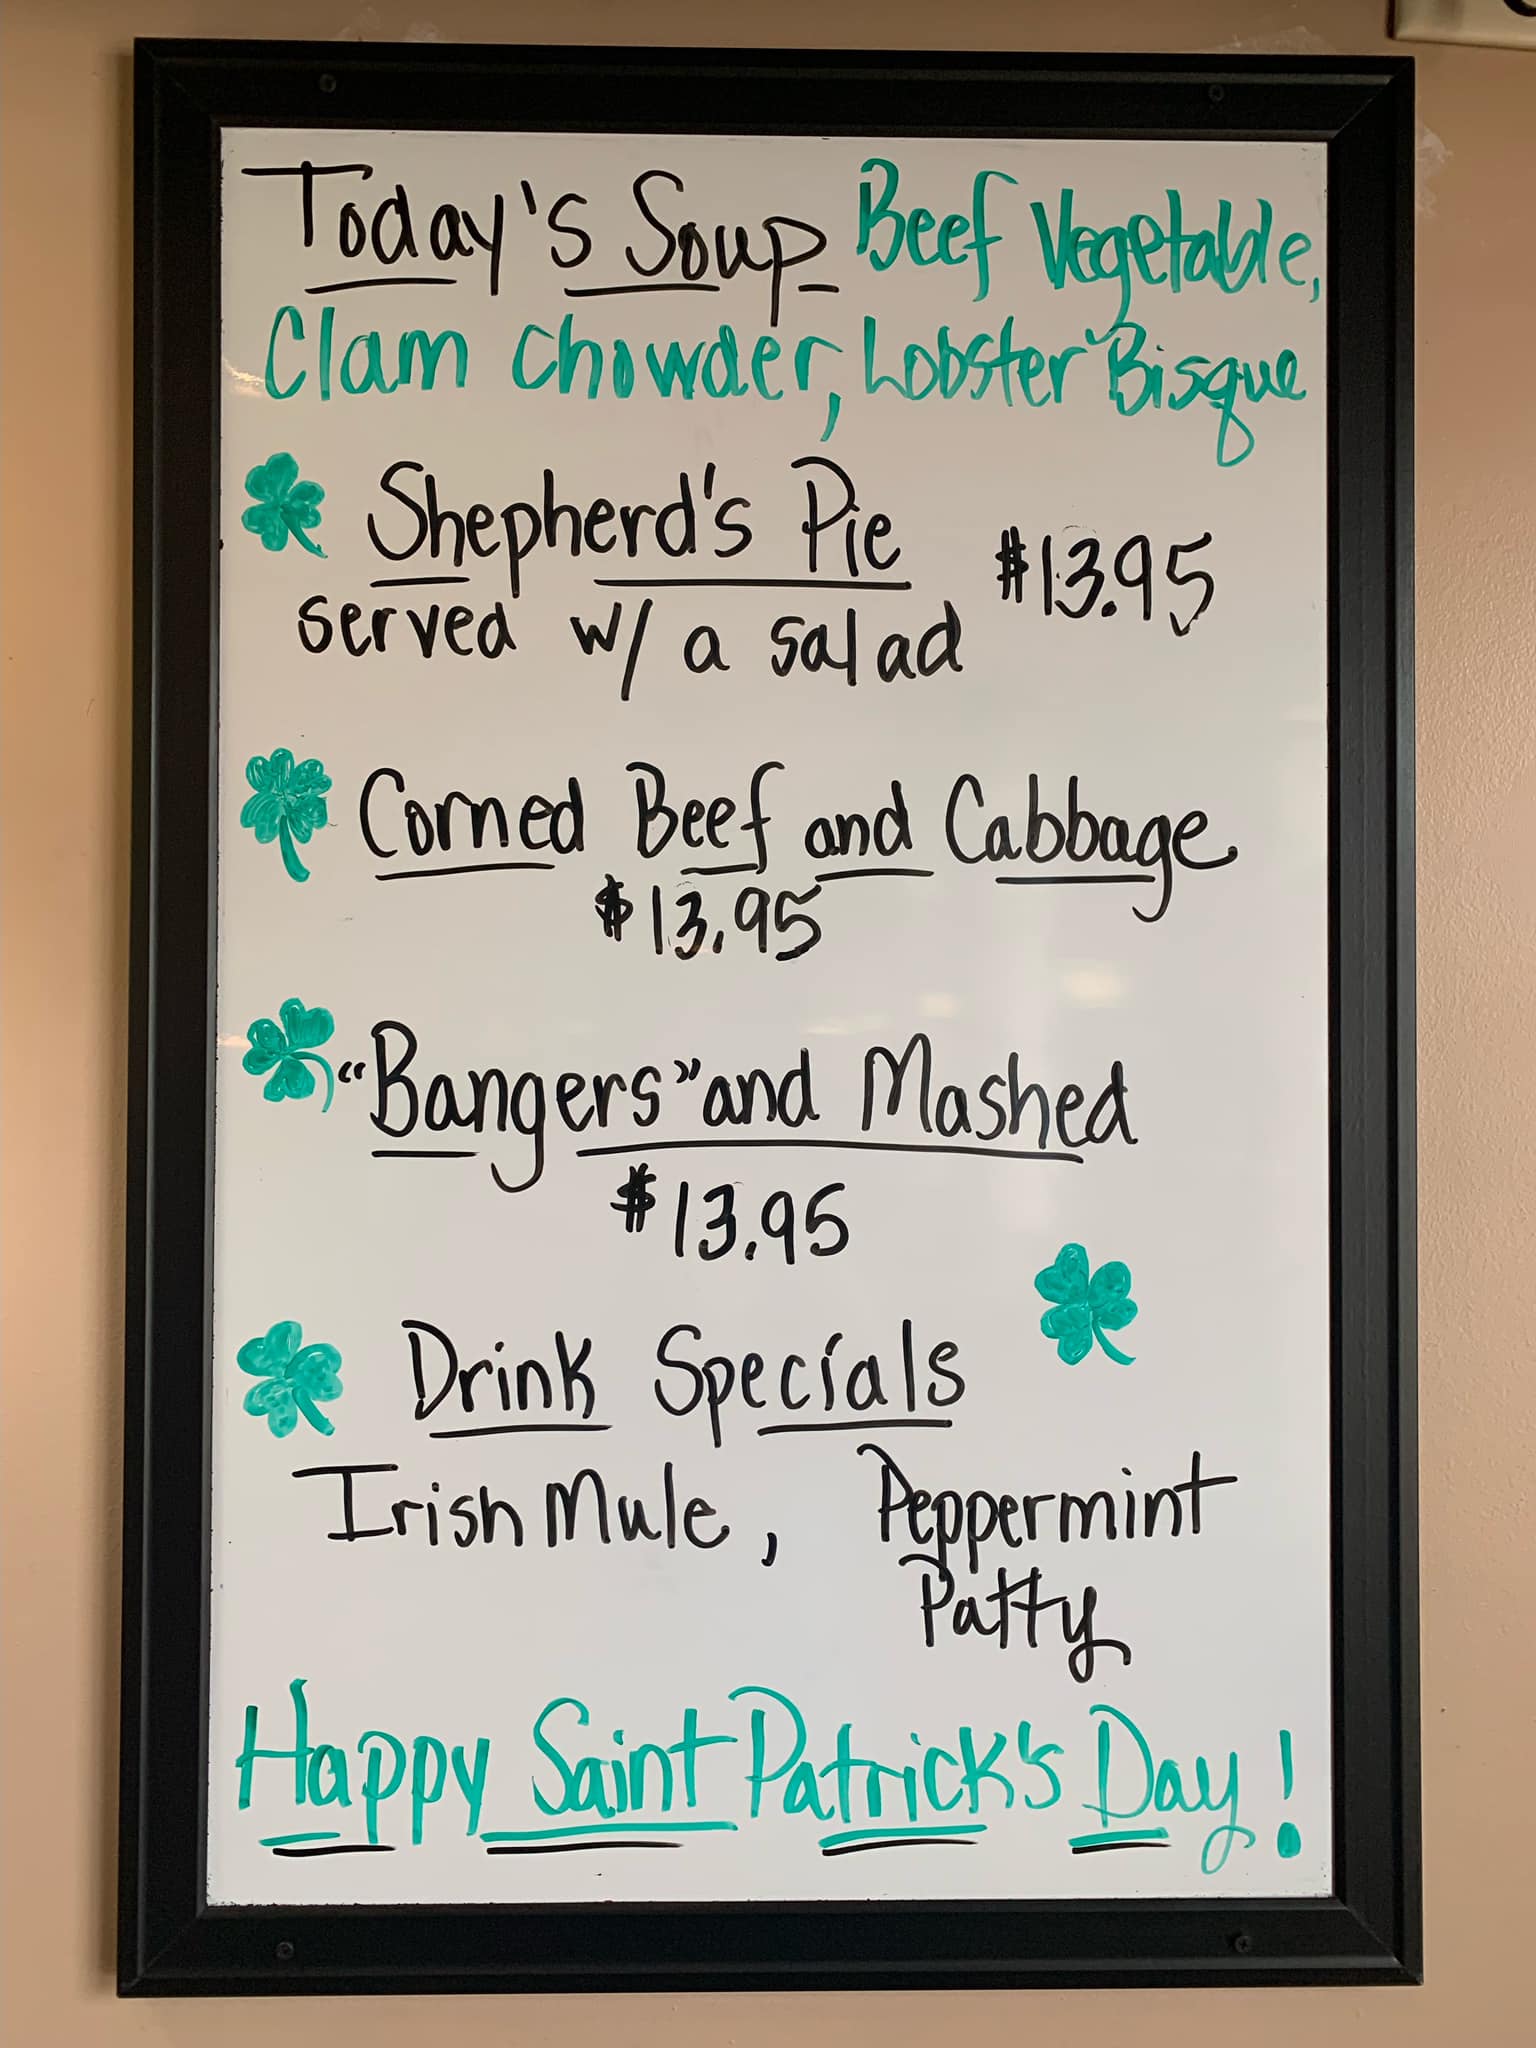 Today's Soup Beef Vegetable,
Clam Chowder, Lobster Bisque
Shepherd's Pie
served w/ a salad $13.95
Corned Beef and Cabbage
$13.95
"Bangers" and Mashed
$13.95
Drink Specials
Irish Mule, Peppermint
Patty
Happy Saint Patrick's Day!